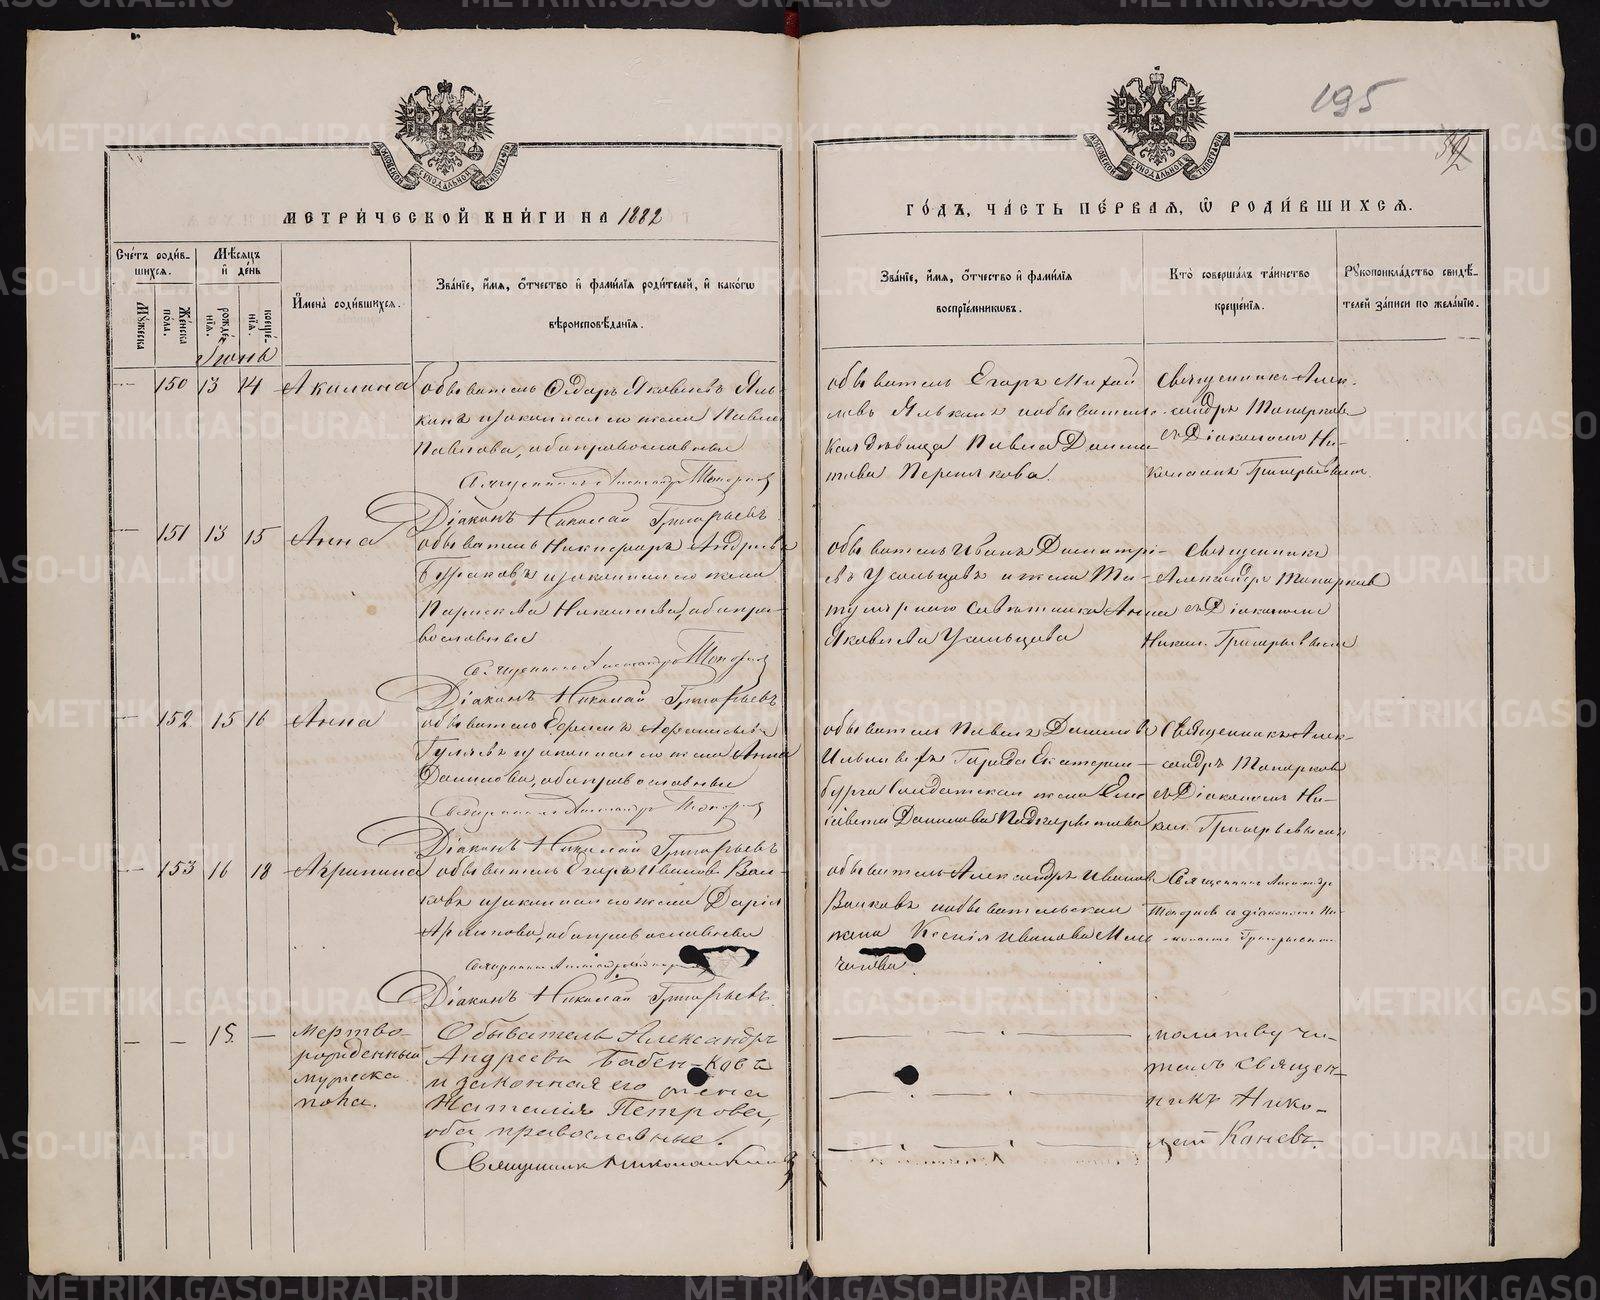 195
МЕТРИ́ЧЕСКОЙ КНИ́ГИ НА 1882
ГО́ДЪ, ЧА́СТЬ ПЕ́РВАЯ, Ѡ РОДИ́ВШИХСЯ.
Сче́тъ роди́в-
шихся.
Мѣсяцъ
и де́нь
Мꙋ́жеска
Же́нска
по́ла.
рожде́-
нїя.
креще́-
нїя.
Имена̀ роди́вшихся.
Зва́нїе, и́мя, о́тчество и фами́лїя роди́телей, и како́гѡ
вѣроисповѣ́данїя.
Зва́нїе, и́мя, о́тчество и фами́лїя
воспрїе́мниковъ.
Кто̀ соверша́лъ та́инство
креще́нїя.
Рꙋкоприкла́дство свидѣ́-
телей за́писи по жела́нїю.
Іюнь
150 13 14 Акилина
обыватель Ѳедоръ Яковлевъ Яль-
кинъ и законная его жена Павла
Павлова, оба православные
Священникъ Александръ Топорковъ
Діаконъ Николай Григорьевъ
обыватель Егоръ Михай
ловъ Ялькинъ и обыватель-
ская дѣвица Павла
Священникъ Алек-
сандръ Топорковъ
съ Діакономъ Ни-
колаемъ Григорьевымъ
151 13 15 Анна
обыватель Никифоръ Андреевъ
Бураковъ и законная его жена
Параскева Николаева, оба пра-
вославные
Священникъ Александръ Топорковъ
Діаконъ Николай Григорьевъ
обыватель Иванъ Димитрі-
евъ Усольцевъ и жена Ти-
тулярнаго Совѣтника Анна
Яковлева Усольцева
Священникъ
Александръ Топорковъ
съ Діакономъ
Никол. Григорьевымъ
152 15 16 Анна
обыватель Ефимъ
Гуляевъ и законная его жена Анна
Данилова, оба православные
Священникъ Александръ Топорковъ
Діаконъ Николай Григорьевъ
обыватель Павелъ Даниловъ
Города Екатерин-
бурга Солдатская жена Ели-
савета Данилова
Священникъ Алек-
сандръ Топорковъ
съ Діакономъ Ни-
кол. Григорьевымъ
153 16 18 Агрипина
обыватель Егоръ Ивановъ Вол-
ковъ и законная его жена Дарія
Архипова, оба православные
Священникъ Александръ
Діаконъ Николай Григорьевъ
обыватель Александръ Ивановъ
Волковъ и обывательская
жена Ксенія Иванова
Священникъ Александръ
Топорковъ съ діакономъ Ни-
колаемъ Григорьевымъ
— — 15. —
Мертво-
рожденный
мужеска
пола.
Обыватель Александръ
Андреевъ Бабен-ковъ
и законная его жена
Наталія Петрова,
оба православные.
Священникъ Николай Каневъ
молитву чи-
талъ Священ-
никъ Нико-
лай Каневъ
METRIKI.GASO-URAL.RU